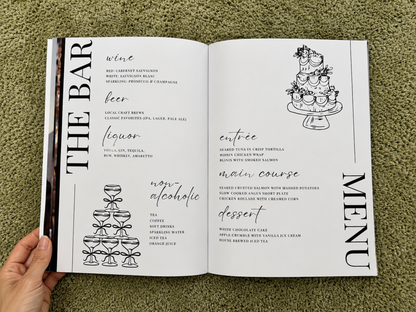 THE BAR
wine
RED: CABERNET SAUVIGNON
WHITE: SAUVIGNON BLANC
SPARKLING: PROSECCO & CHAMPAGNE
beer
LOCAL CRAFT BREWS
CLASSIC FAVORITES (IPA, LAGER, PALE ALE)
liquor
VODKA, GIN, TEQUILA,
RUM, WHISKEY, AMARETTO
non-
alcoholic
TEA
COFFEE
SOFT DRINKS
SPARKLING WATER
ICED TEA
ORANGE JUICE
MENU
entrée
SEARED TUNA IN CRISP TORTILLA
HOISIN CHICKEN WRAP
BLINIS WITH SMOKED SALMON
main course
SEARED CRUSTED SALMON WITH MASHED POTATOES
SLOW COOKED ANGUS SHORT PLATE
CHICKEN ROULADE WITH CREAMED CORN
dessert
WHITE CHOCOLATE CAKE
APPLE CRUMBLE WITH VANILLA ICE CREAM
HOUSE BREWED ICED TEA